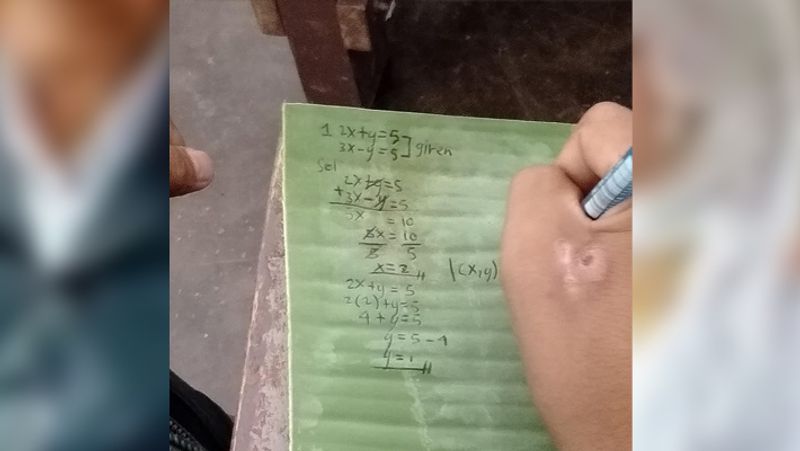 1 2x+y=5
3x-y=5 ] given
Sol
2x+y=5
+3x-y=5
5x =10
5x = 10
5 5
x=2
2x+y=5
2(2)+y=5
4+y=5
y=5-4
y=1
(x,y)